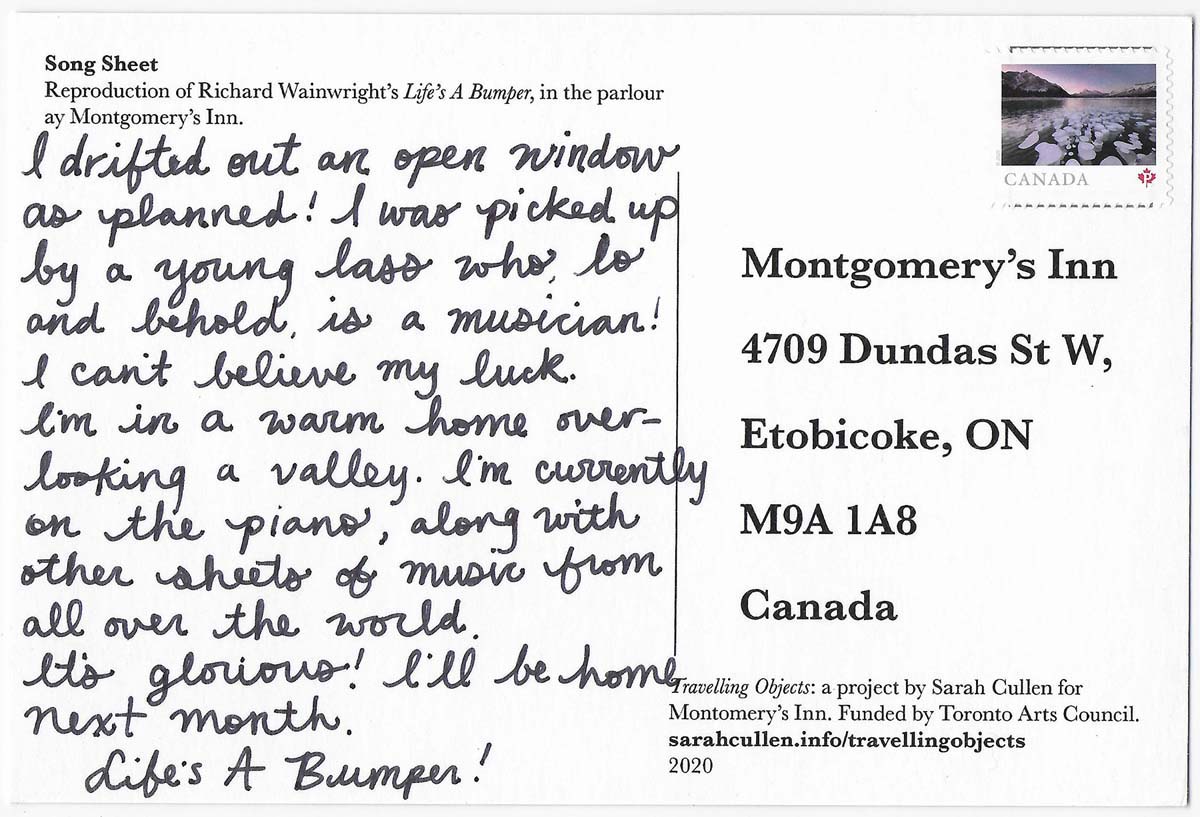 Song Sheet
Reproduction of Richard Wainwright's Life's A Bumper, in the parlour
ay Montgomery's Inn.
I drifted out an open window
as planned! I was picked up
by a young lass who, lo
and behold, is a musician!
I can't believe my luck.
I'm in a warm home over-
looking a valley. I'm currently
on the piano, along with
other sheets of music from
all over the world.
It's glorious! I'll be home
next month.
Life's A Bumper!
CANADA
P
Montgomery's Inn
4709 Dundas St W,
Etobicoke, ON
M9A 1A8
Canada
Travelling Objects: a project by Sarah Cullen for
Montomery's Inn. Funded by Toronto Arts Council.
sarahcullen.info/travellingobjects
2020